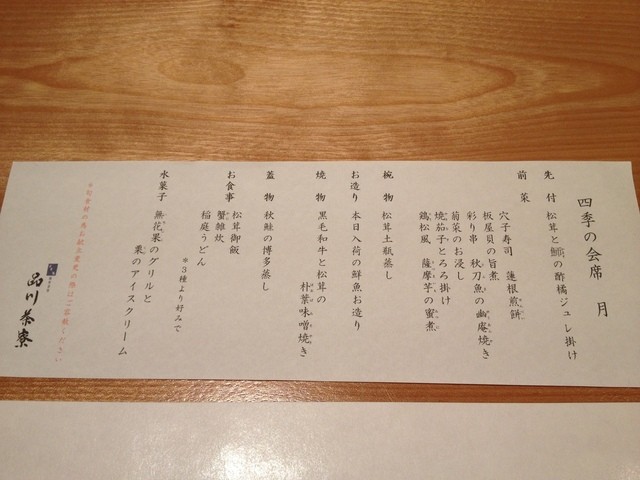 四季の会席 月
先付 松茸と鮑の酢橘ジュレ掛け
前菜
穴子寿司 蓮根煎餅
板屋貝の旨煮
彩り串 秋刀魚の幽庵焼き
菊菜のお浸し
焼茄子とろろ掛け
鶏松風 薩摩芋の蜜煮
椀物 松茸土瓶蒸し
お造り 本日入荷の鮮魚お造り
焼物 黒毛和牛と松茸の
朴葉味噌焼き
蓋物 秋鮭の博多蒸し
お食事 松茸御飯
蟹雑炊
稲庭うどん
*3種より好みで
水菓子 無花果のグリルと
栗のアイスクリーム
品川茶寮